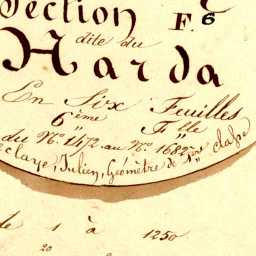 Section F. 6
dite du
Harda
En Six Feuilles
6ème Flle
du No. 1472 au No. 1682
Julien, Géomètre de 1ère classe
de 1 à 1250
20